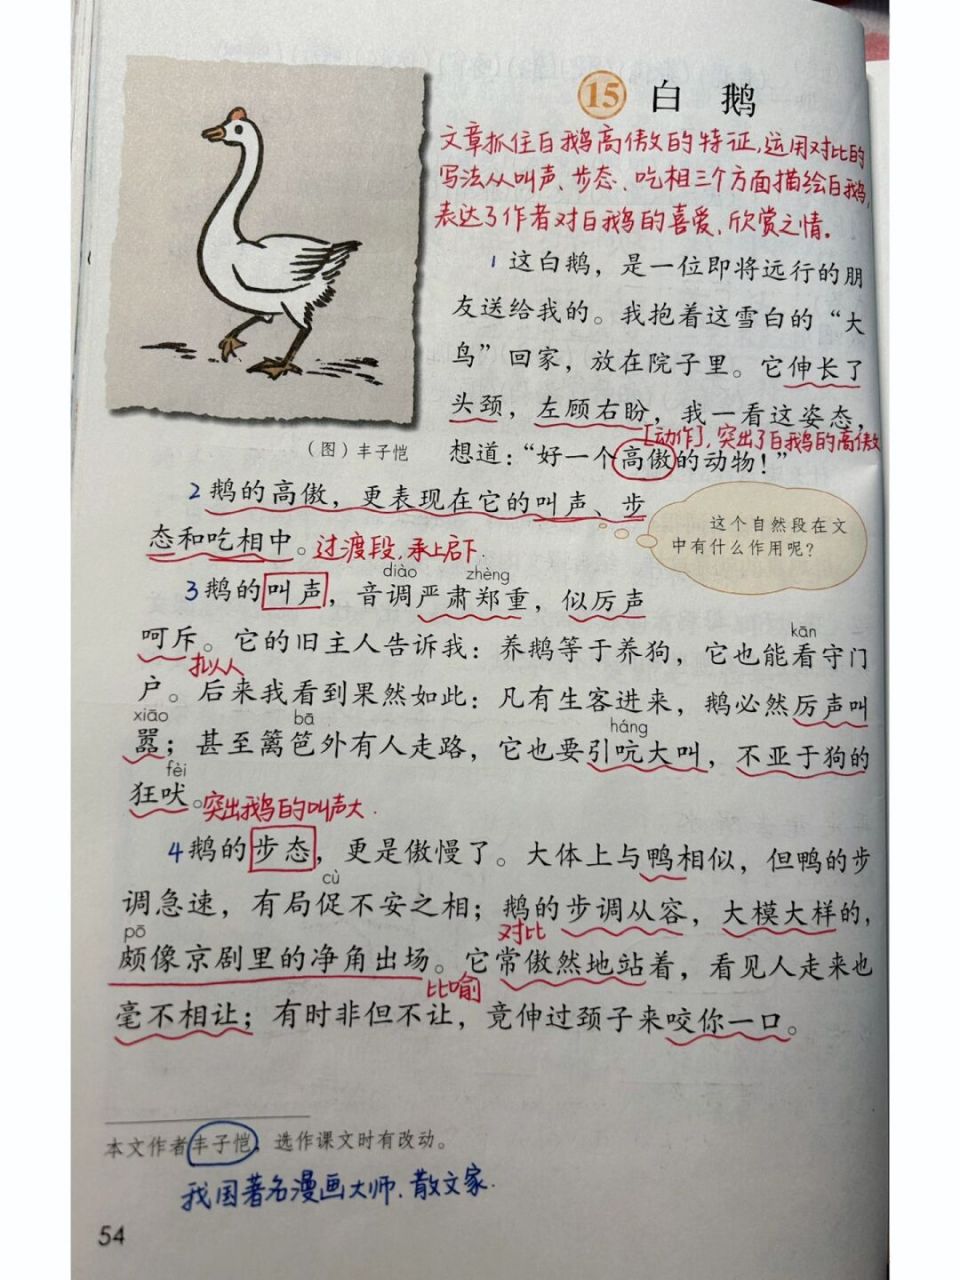 15 白鹅
文章抓住白鹅高傲的特征,运用对比的
写法从叫声、步态、吃相三个方面描绘白鹅,
表达了作者对白鹅的喜爱、欣赏之情。
1 这白鹅，是一位即将远行的朋
友送给我的。我抱着这雪白的“大
鸟”回家，放在院子里。它伸长了
头颈，左顾右盼，我一看这姿态，
[动作],突出了白鹅的高傲
想道：“好一个高傲的动物！”
（图）丰子恺
2 鹅的高傲，更表现在它的叫声、步
态和吃相中。过渡段,承上启下.
这个自然段在文
中有什么作用呢？
diào zhèng
3 鹅的叫声，音调严肃郑重，似厉声
kān
呵斥。它的旧主人告诉我：养鹅等于养狗，它也能看守门
拟人
户。后来我看到果然如此：凡有生客进来，鹅必然厉声叫
xiāo bā háng
嚣；甚至篱笆外有人走路，它也要引吭大叫，不亚于狗的
fèi
狂吠。突出鹅的叫声大.
4 鹅的步态，更是傲慢了。大体上与鸭相似，但鸭的步
cù
调急速，有局促不安之相；鹅的步调从容，大模大样的，
pō 对比
颇像京剧里的净角出场。它常傲然地站着，看见人走来也
比喻
毫不相让；有时非但不让，竟伸过颈子来咬你一口。
本文作者丰子恺，选作课文时有改动。
我国著名漫画大师、散文家.
54